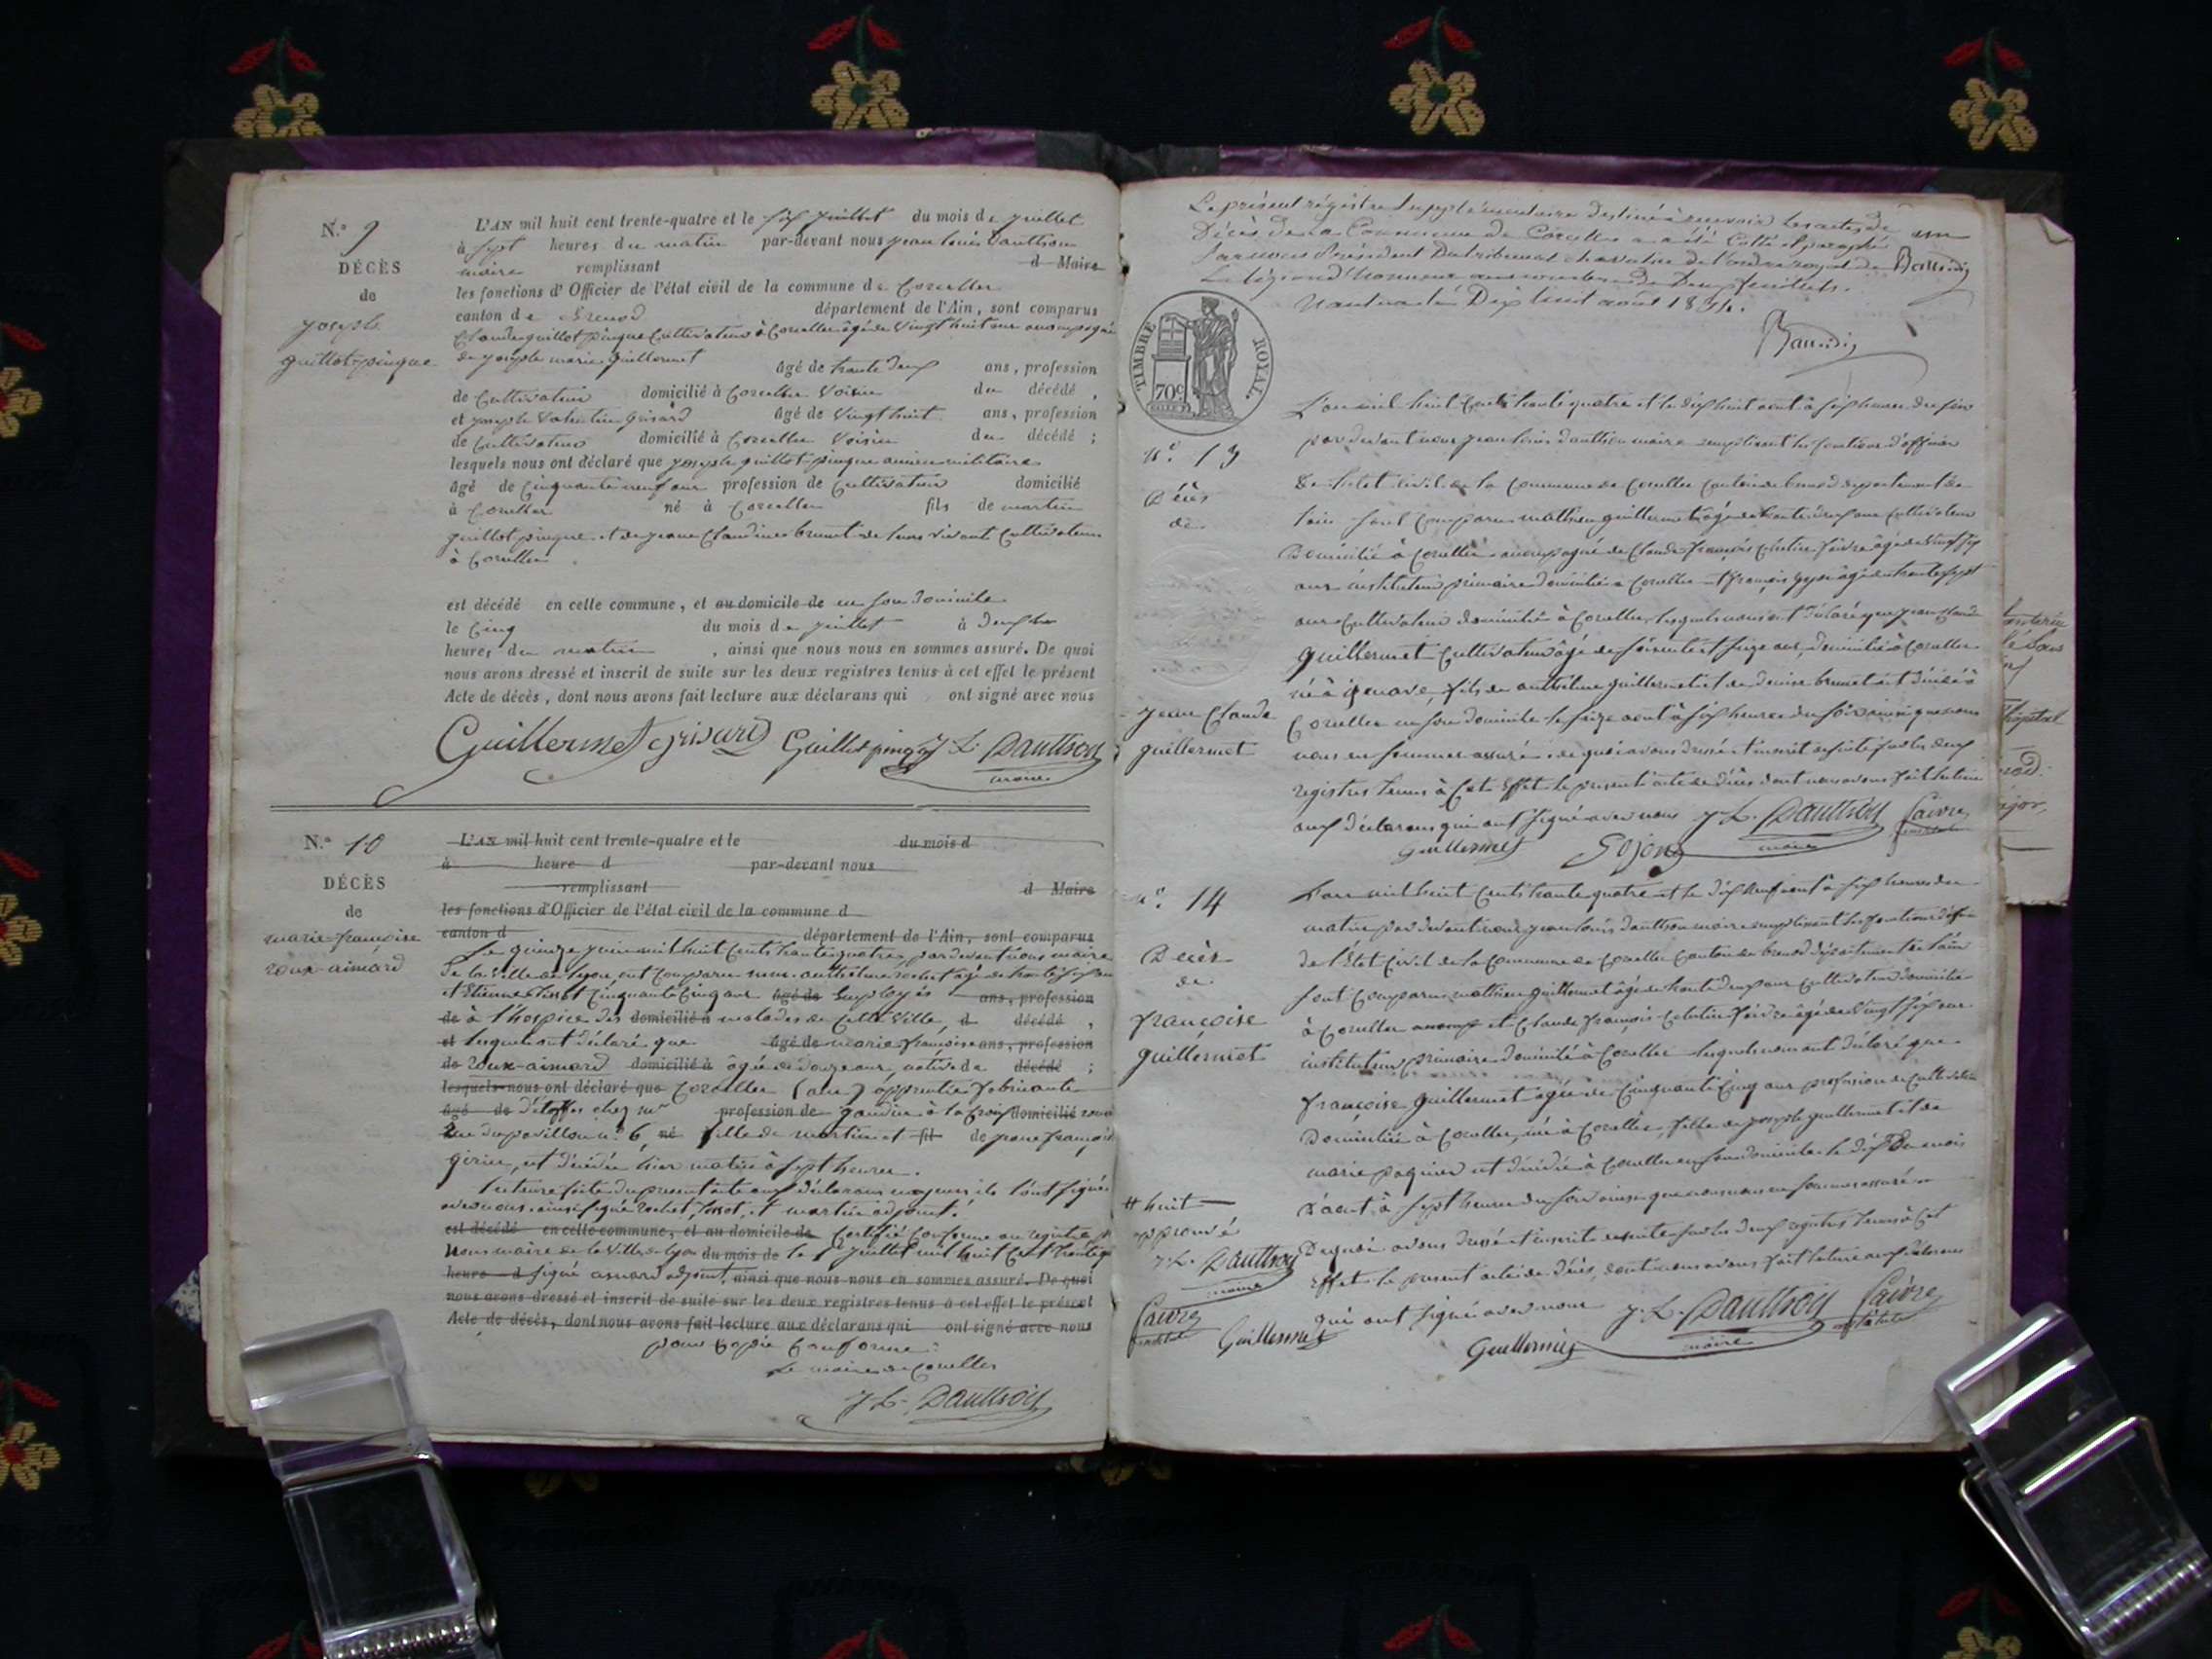 N.° 9
DÉCÈS
de
joseph
guillot-pinque
L'AN mil huit cent trente-quatre et le six juillet du mois de juillet
à sept heures du matin par-devant nous jean louis Dauthson
maire remplissant d Maire
les fonctions d'Officier de l'état civil de la commune de Corcelles
canton de Brenod département de l'Ain, sont comparus
Claude guillot-pinque Cultivateur à Corcelles âgé de vingt huit ans accompagné
de joseph marie guillermet âgé de trente deux ans, profession
de Cultivateur domicilié à Corcelles voisin du décédé,
et joseph valentin grisard âgé de vingt huit ans, profession
de Cultivateur domicilié à Corcelles voisin du décédé;
lesquels nous ont déclaré que joseph guillot-pinque ancien militaire
âgé de Cinquante neuf ans profession de Cultivateur domicilié
à Corcelles né à Corcelles fils de martin
guillot-pinque et de jeane Claudine brunet de leurs vivant Cultivateurs
à Corcelles
est décédé en cette commune, et au domicile de en son domicile
le Cinq du mois de juillet à deux
heures du matin, ainsi que nous nous en sommes assuré. De quoi
nous avons dressé et inscrit de suite sur les deux registres tenus à cet effet le présent
Acte de décès, dont nous avons fait lecture aux déclarans qui ont signé avec nous
Guillermet grisard Guillot pinque J L. Dauthson
maire
N.° 10
DÉCÈS
de
marie-françoise
roux-aimard
L'AN mil huit cent trente-quatre et le du mois d
à heure d par-devant nous
remplissant d Maire
les fonctions d'Officier de l'état civil de la commune d
canton d département de l'Ain, sont comparus
Le quinze juin mil huit Cents trente quatre, par devant nous maire
de la ville de lyon, ont comparu anthelme rochet âgé de trente six ans
et Etienne Tissot Cinquante Cinq ans âgé de Employés ans, profession
de à l'hospice des domicilié à malades de Cette Ville, d décédé,
et lesquels ont déclaré que âgé de marie françoise ans, profession
de roux-aimard domicilié à âgée de douze ans, native de décédé;
lesquels nous ont déclaré que Corcelles (ain) apprentie fabricante
âgé de d'étoffes chez mr profession de gaudin à la Croix domicilié rousse
Rue du pavillon n° 6, né fille de martin et fil de jeane françoise
girin, est décédée hier matin à sept heures.
Lecture faite du présent acte aux déclarans majeurs ils l'ont signé
avec nous. ainsi signé rochet, Tissot, et martin adjoint.
est décédé en cette commune, et au domicile de Certifié Conforme au registre
Nous maire de la Ville de lyon du mois de le 1er juillet mil huit Cent trente quatre
heure d signé adjoint. ainsi que nous nous en sommes assuré. De quoi
nous avons dressé et inscrit de suite sur les deux registres tenus à cet effet le présent
Acte de décès, dont nous avons fait lecture aux déclarans qui ont signé avec nous
pour Copie Conforme:
Le maire de Corcelles
J L. Dauthson
Le présent régistre supplémentaire destiné à recevoir les actes de
Décès de la Commune de Corcelles a été Cotté et paraphé
par nous Président du tribunal chevalier de l'ordre royal de
la légion d'honneur
Nantua le Dix huit août 1834.
TIMBRE ROYAL
70c
N.° 13
Décès
de
jean Claude
guillermet
L'an mil huit Cents trente quatre et le dix huit août à six heures du soir
par devant nous jean louis dauthson maire remplissant les fonctions d'officier
De l'état Civil de la Commune de Corcelles Canton de brenod département de
l'ain sont Comparus mathieu guillermet âgé de trente deux ans Cultivateur
Domicilié à Corcelles accompagné de Claude françois Célestin faivre âgé de vingt six
ans instituteur primaire domicilié à Corcelles et françois âgé de trente sept
ans Cultivateur domicilié à Corcelles, lesquels nous ont déclaré que jean Claude
guillermet Cultivateur âgé de soixante et seize ans, domicilié à Corcelles
né à, fils de anthelme guillermet et de denise brunet est décédé à
Corcelles en son domicile le seize août à six heures du soir ainsi que nous
nous en sommes assuré. de quoi avons dressé et inscrit de suite sur les deux
registres tenus à Cet Effet le présent acte de décès dont nous avons fait lecture
aux déclarans qui ont signé avec nous J L. Dauthson Faivre
Guillermet maire
N.° 14
Décès
de
françoise
guillermet
L'an mil huit Cents trente quatre et le dix neuf août à six heures du
matin par devant nous jean louis dauthson maire remplissant les fonctions d'offr
de l'Etat Civil de la Commune de Corcelles Canton de brenod département de l'ain
sont Comparus mathieu guillermet âgé de trente deux ans Cultivateur domicilié
à Corcelles et Claude françois Célestin faivre âgé de vingt six ans
instituteur primaire domicilié à Corcelles lesquels nous ont déclaré que
françoise guillermet âgée de Cinquante Cinq ans profession de Cultivatrice
Domiciliée à Corcelles, née à Corcelles, fille de joseph guillermet et de
marie paquier est décédée à Corcelles en son domicile le dix # du mois
d'août à sept heures du soir ainsi que nous nous en sommes assuré
De quoi avons dressé et inscrit de suite sur les deux registres tenus à Cet
effet le présent acte de décès, dont nous avons fait lecture aux déclarans
qui ont signé avec nous J. L. Dauthson Faivre
Guillermet maire
# huit
approuvé
J L. Dauthson
maire
Faivre
Guillermet